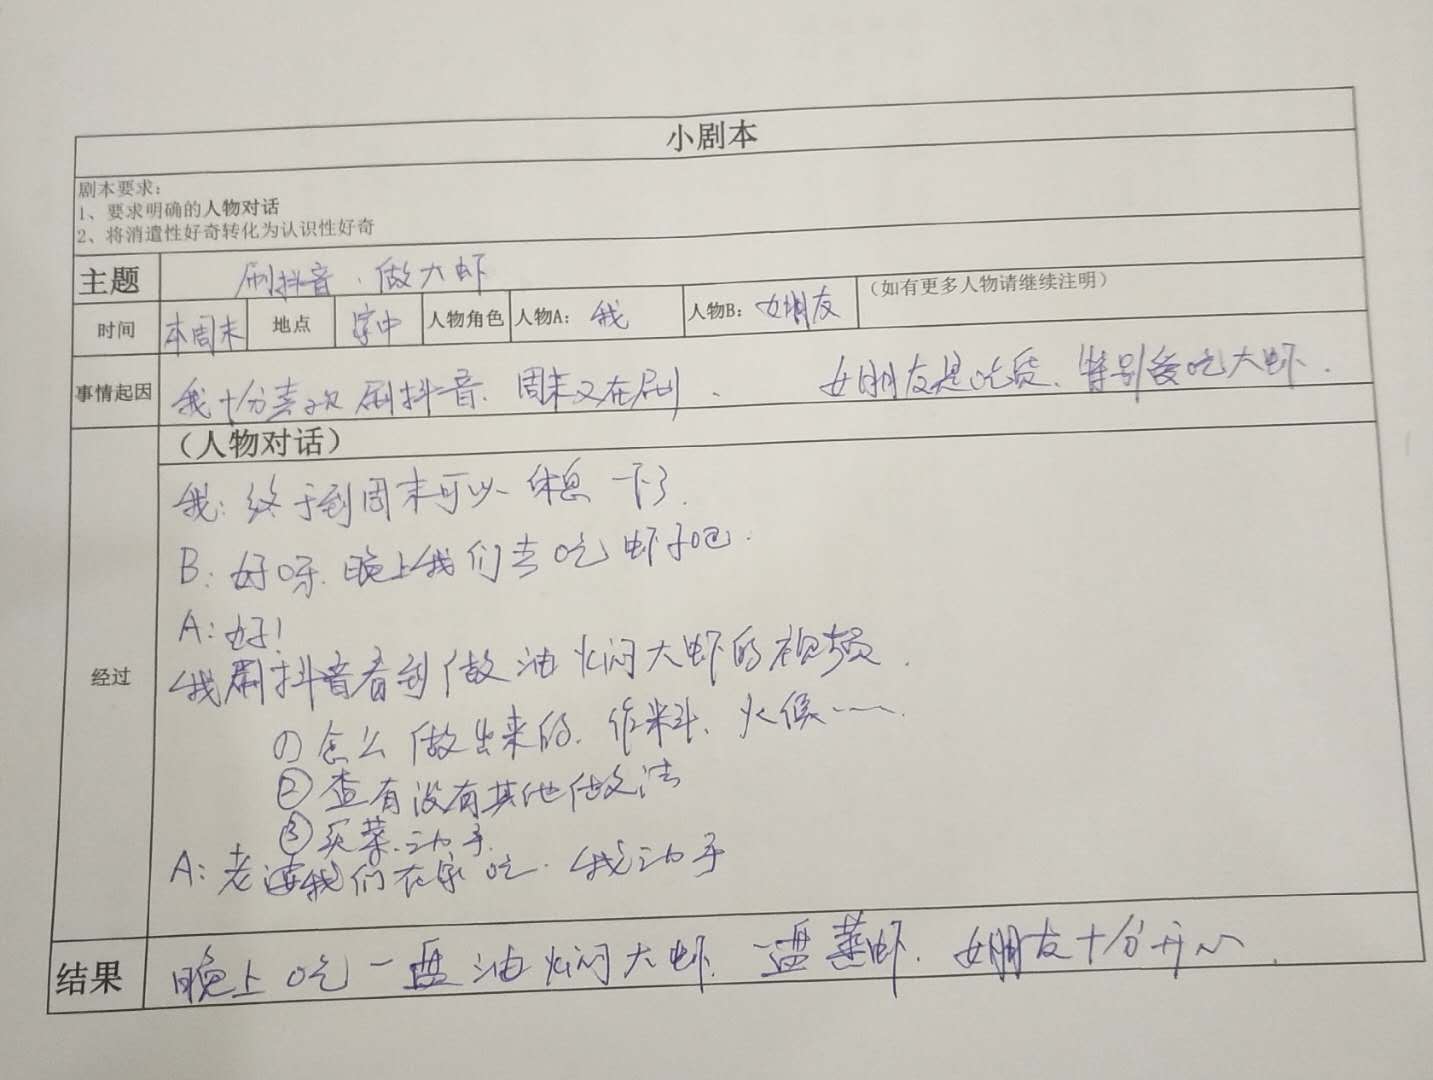 小剧本
剧本要求：
1、要求明确的人物对话
2、将消遣性好奇转化为认识性好奇
主题 刷抖音、做大虾
时间 本周末 地点 家中 人物角色 人物A： 我 人物B： 女朋友 （如有更多人物请继续注明）
事情起因 我十分喜欢刷抖音、周末又在刷、 女朋友是吃货、特别爱吃大虾.
（人物对话）
经过
我：终于到周末可以休息一下了.
B：好呀、晚上我们去吃虾子吧.
A：好！
我刷抖音看到做油焖大虾的视频.
①怎么做出来的、作料、火候……
②查有没有其他做法
③买菜、动手.
A：老婆我们在家吃、我动手
结果 晚上吃一盘油焖大虾、一盘蒸虾、女朋友十分开心.